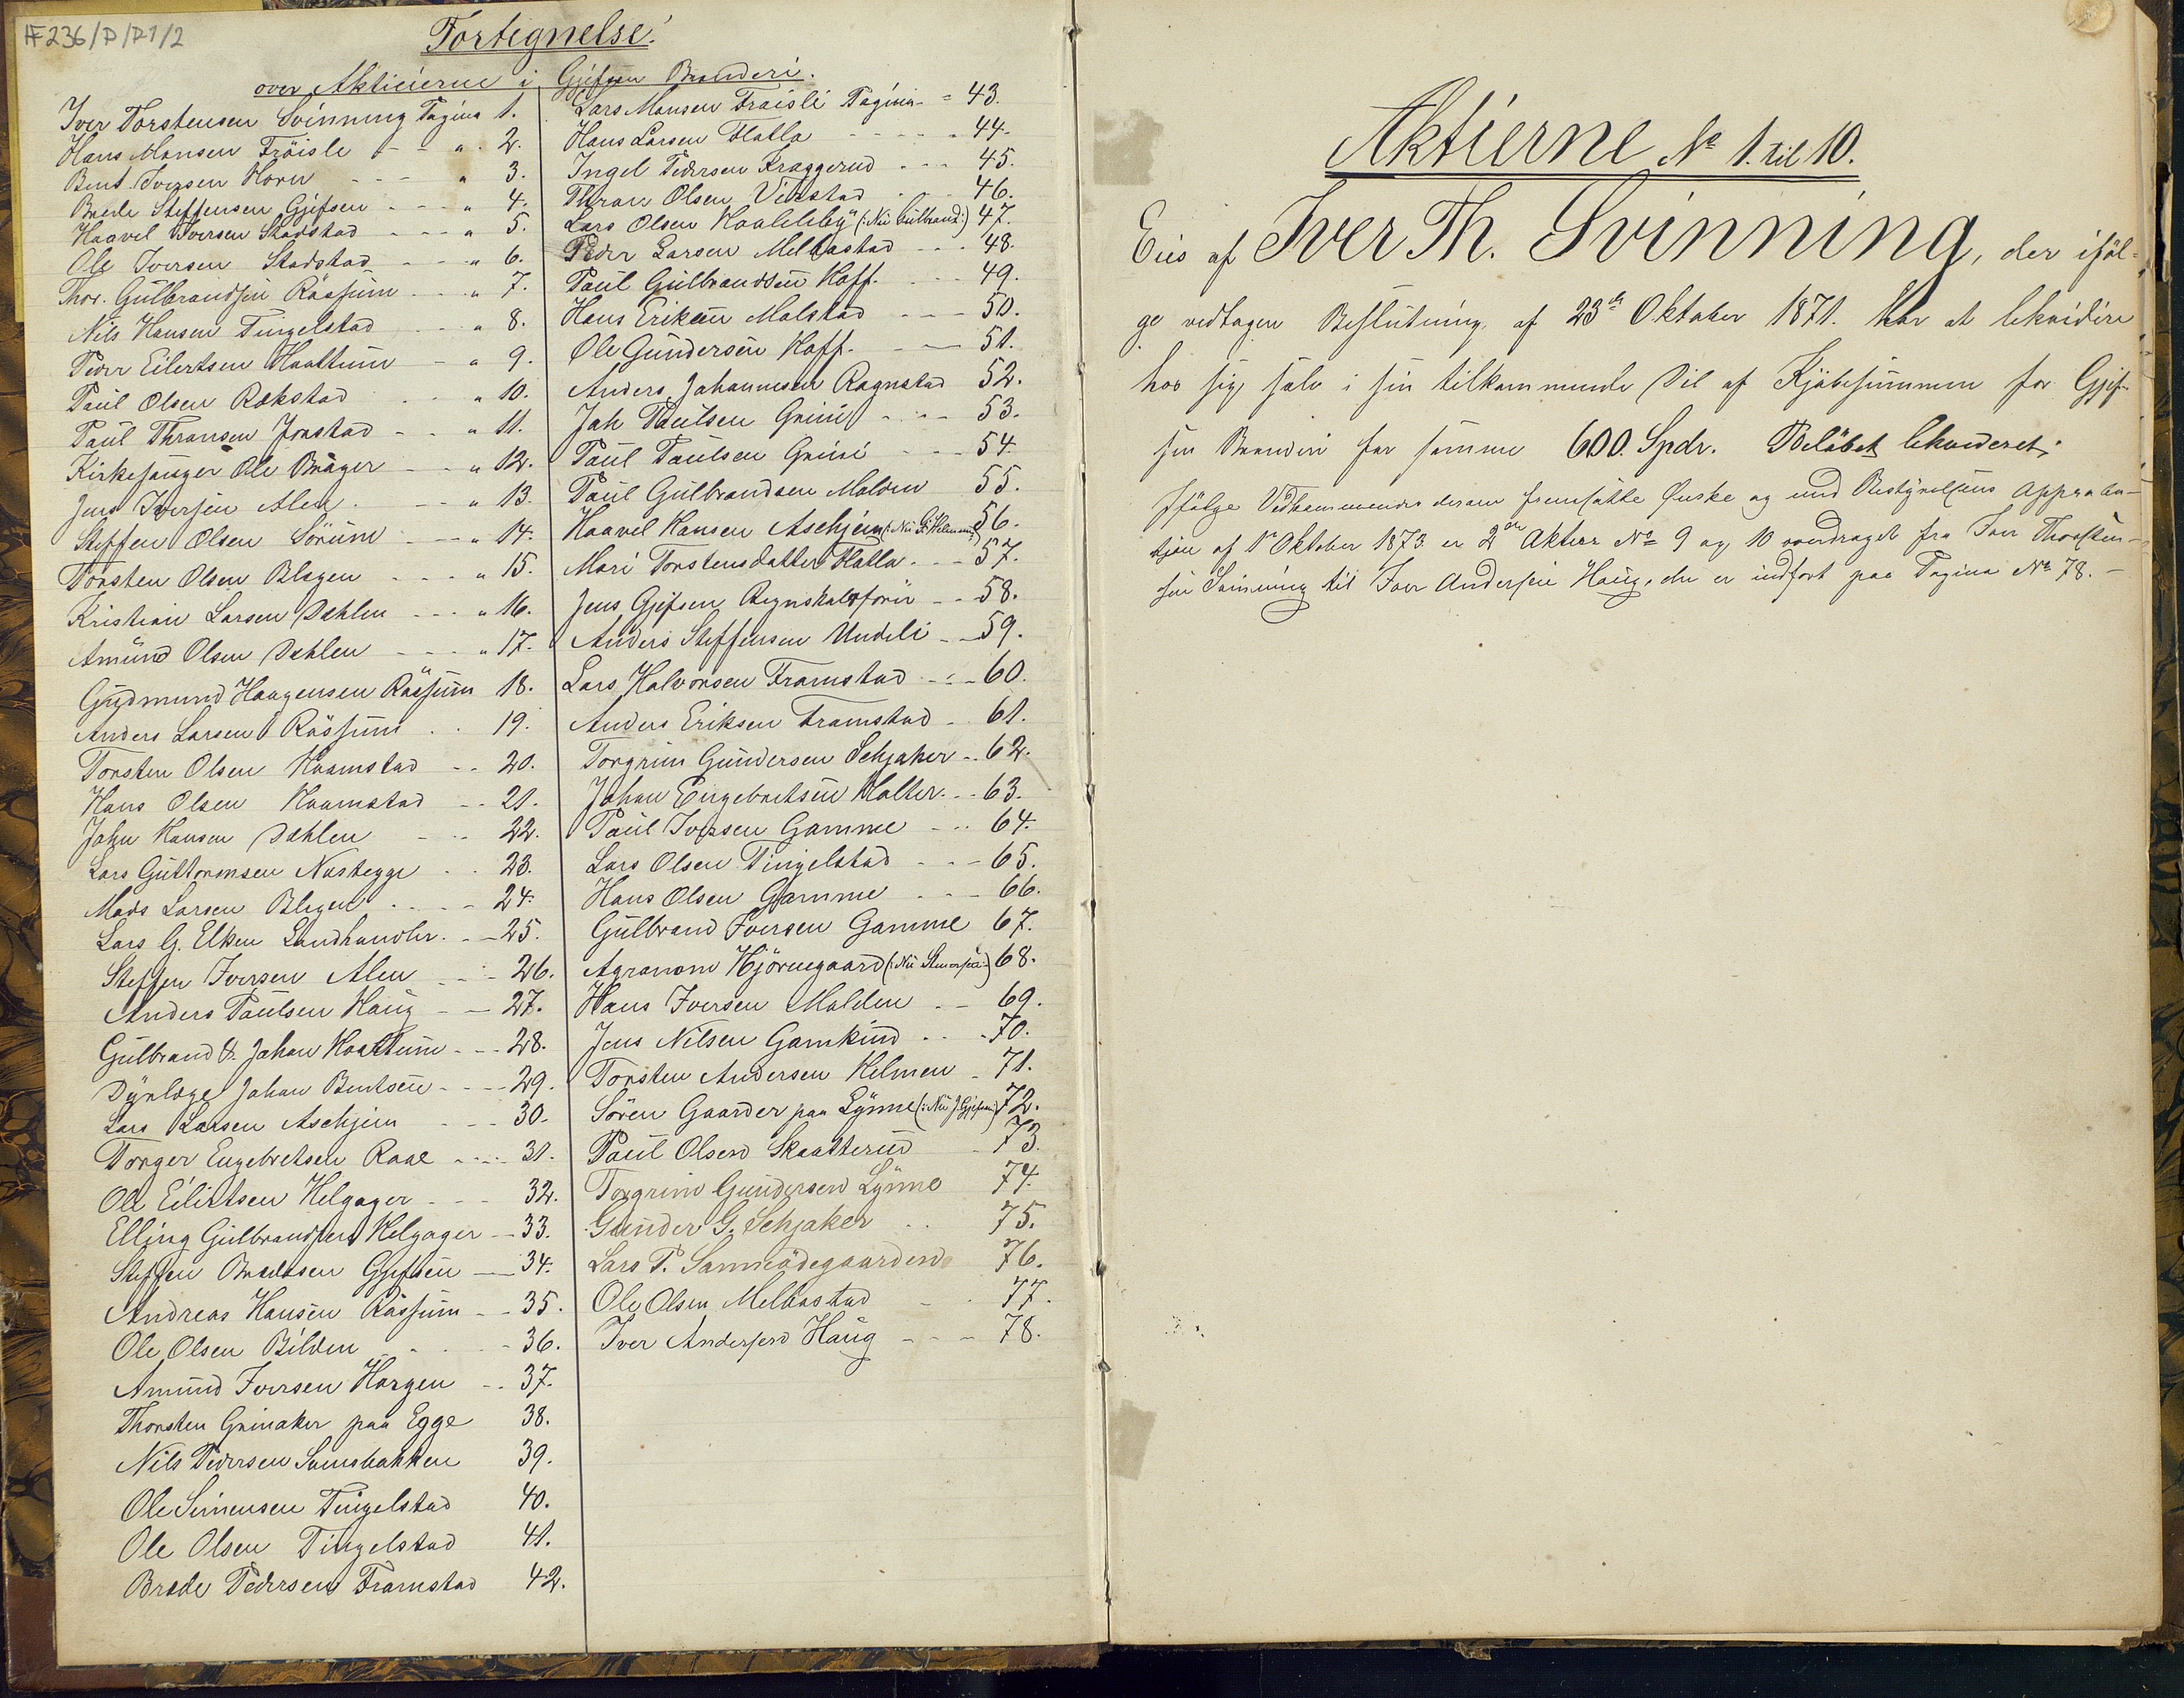 FF236/D/D1/2
Fortegnelse!
over Aktieierne i Gjefsen Brænderi.
Iver Torstensen Svinning Pagina 1.
Hans Monsen Fröisli - - " 2.
Bent Iversen Horn - - - " 3.
Brede Steffensen Gjefsen - - - " 4.
Haavel Iversen Stadstad - - - " 5.
Ole Iversen Stadstad - - " 6.
Thor. Gulbrandsen Råssum - - " 7.
Nils Hansen Tingelstad - - " 8.
Peder Eilertsen Haattum - " 9.
Paul Olsen Rækstad - " 10.
Paul Thransen Jonstad - - " 11.
Kirkesanger Ole Brager - - " 12.
Jens Iversen Alen. - - " 13.
Steffen Olsen Sörum - - " 14.
Torsten Olsen Blegen - - - " 15.
Kristian Larsen Dæhlen - - - " 16.
Amund Olsen Dæhlen - - - " 17.
Gudmund Haagensen Råssum 18.
Anders Larsen Råssum - - 19.
Torsten Olsen Kaamstad - - 20.
Hans Olsen Kaamstad - - 21.
John Hansen Dæhlen - - - 22.
Lars Guttormsen Nastegge - - 23.
Mads Larsen Blegen - - - 24.
Lars G. Elken Landhandler. - - 25.
Steffen Iversen Alen - - - 26.
Anders Paulsen Haug - - 27.
Gulbrand & Johan Haattum - - - 28.
Dyrlæge Johan Bentsen - - - - 29.
Lars Larsen Aschjem - - - 30.
Torger Engebretsen Raae - - - - 31.
Ole Eilertsen Helgager - - - 32.
Elling Gulbrandsen Helgager - - 33.
Steffen Bredesen Gjefsen - - 34.
Andreas Hansen Råssum - - 35.
Ole Olsen Bilden - - - - 36.
Amund Iversen Horgen - - 37.
Thorsten Grinaker paa Egge 38.
Nils Pedersen Samsbakken 39.
Ole Simensen Tingelstad 40.
Ole Olsen Tingelstad 41.
Brede Pedersen Framstad 42.
Lars Monsen Fraisli Pagina - = 43.
Hans Larsen Flatla - - - - - 44.
Ingel Pedersen Kraggerud - - - 45.
Thran Olsen Vixstad - - - 46.
Lars Olsen Haaleleby (: Nu Gulbrand:) 47.
Peder Larsen Melbostad - - - 48.
Paul Gulbrandsen Hoff. - - - 49.
Hans Eriksen Molstad - - - 50.
Ole Gundersen Hoff. - - - 51.
Anders Johannesen Rognstad 52.
Joh Paulsen Grini - - - 53.
Paul Paulsen Grini - - - 54.
Paul Gulbrandsen Molden 55.
Haavel Hansen Aschjem (: Nu G. Helmen:) 56.
Mari Torstensdatter Flatla - - - 57.
Jens Gjefsen Regnskabsförer - - 58.
Anders Steffensen Undeli - - 59.
Lars Halvorsen Framstad - - - 60.
Anders Eriksen Framstad - - 61.
Torgrim Gundersen Schjaker - - 62.
Johan Engebretsen Holter. - - 63.
Paul Iversen Gamme - - - 64.
Lars Olsen Tingelstad - - - 65.
Hans Olsen Gamme - - - 66.
Gulbrand Iversen Gamme 67.
Agronom Hjörnegaard (: Nu :) 68.
Hans Iversen Molden - - 69.
Jens Nilsen Gamkind - - - 70.
Torsten Andersen Helmen - 71.
Sören Gaarder paa Lynne (: Nu J. Gjefsen:) 72.
Paul Olsen Skaatterud - 73.
Torgrim Gundersen Lynne 74.
Gunder G. Schjaker - - 75.
Lars P. Sanneödegaarden 76.
Ole Olsen Melbostad - - 77.
Iver Andersen Haug - - - 78.
Aktierne No 1. til 10.
Eies af Iver Th. Svinning, der iföl-
ge vedtagen Beslutning af 23de Oktober 1871. har at likvidere
hos sig själv i sin tilkommende Del af Kjöbesummen for Gjef-
sen Brænderi for samme 600. Spdr. Belöbet likvideret.
Ifölge Vedkommendes derom fremsatte Önske og med Bestyrelsens Approba-
tjon af 1ste Oktober 1873. er 2de Aktier No 9 og 10 overdraget fra Iver Thorsten-
sen Svinning til Iver Andersen Haug, der er indfört paa Pagina No 78. -